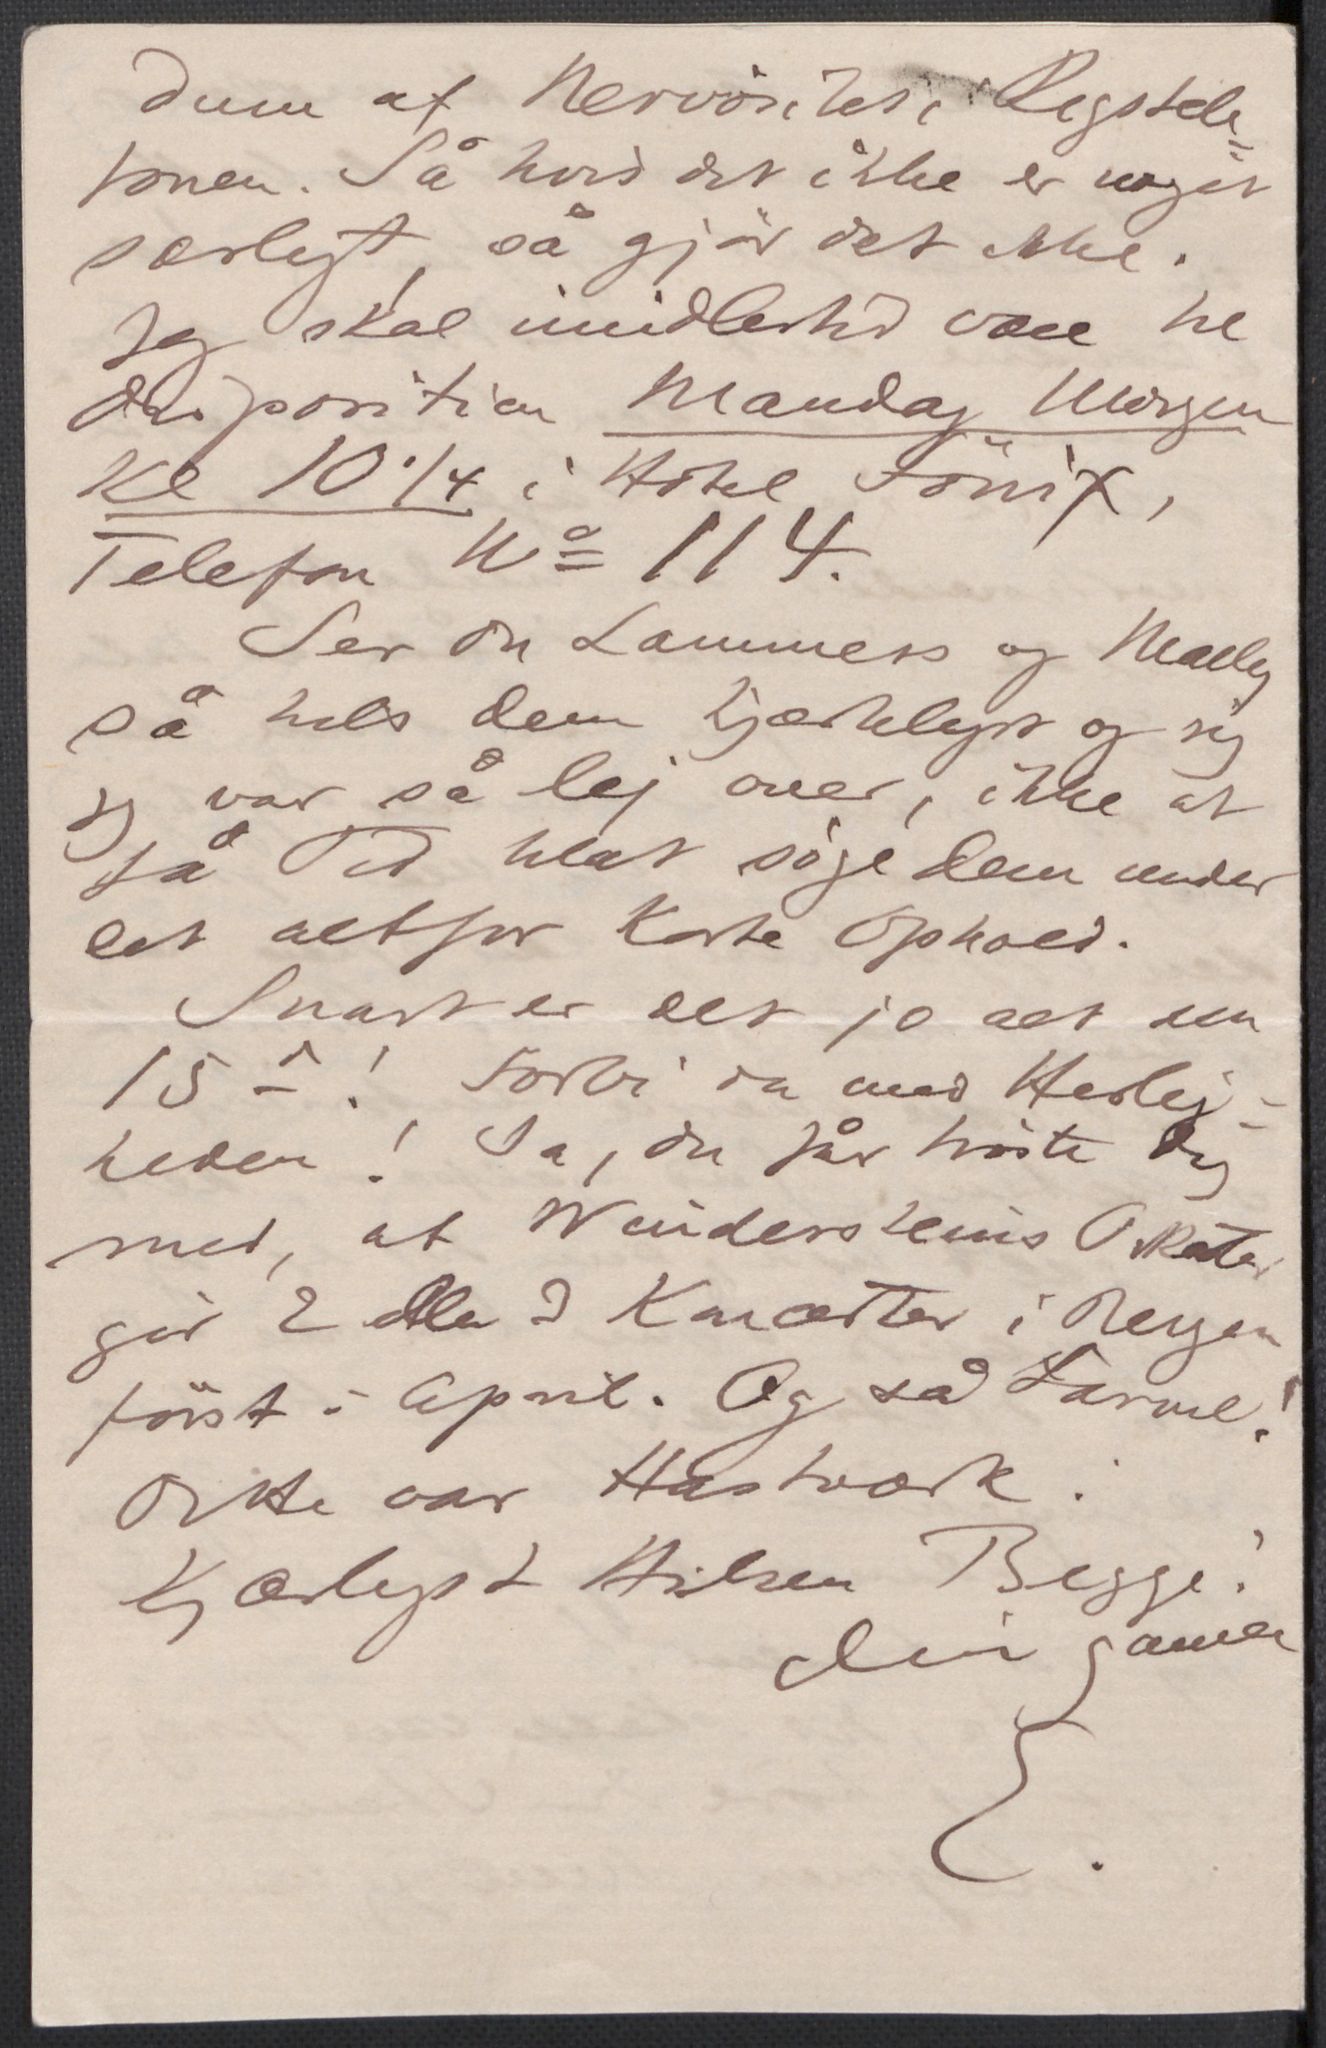 dum af Nervösitet i Rigstele=
fonen. Så hvis det ikke er noget
særligt, så gjör det ikke.
Jeg skal imidlertid være til
disposition Mandag Morgen
Kl 10 1/4 i Hotel Fönix,
Telefon No 114.
Ser du Lammers og Mally
så hils dem hjerteligst og sig
jeg var så lej over, ikke at
få Tid til at söge dem under
det altfor korte Ophold.
Snart er det jo alt den
15de! Forbi da med Herlig-
heden! Ja, du får tröste dig
med, at Windersteins Orkester
gir 2 eller 3 Koncerter i Bergen
först i April. Og så Larvik!
Dette var Hastværk.
Kjærligst Hilsen Begge!
din gamle
E.